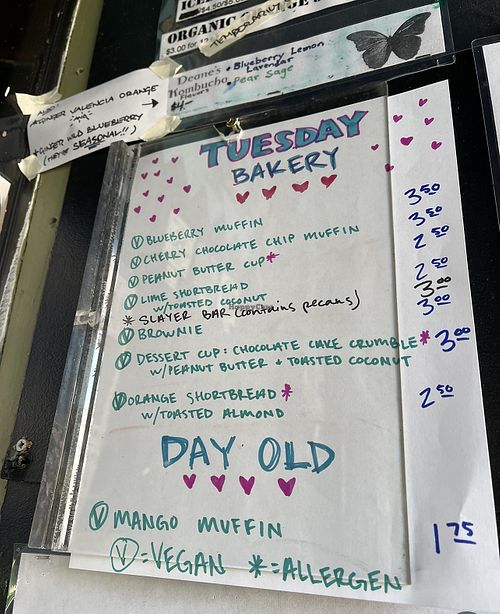 ICE
$4.50/$5
ORGANIC
$3.00 for 12
TEMPORARILY
Deane's
Kombucha
Flavors
$4-
• Blueberry Lemon
Lavender
• Pear Sage
ALSO:
*GINGER VALENCIA ORANGE
"AND"
*GINGER WILD BLUEBERRY
SEASONAL!!)
TUESDAY
BAKERY
Ⓥ BLUEBERRY MUFFIN 3.50
Ⓥ CHERRY CHOCOLATE CHIP MUFFIN 3.50
Ⓥ PEANUT BUTTER CUP * 2.50
Ⓥ LIME SHORTBREAD 2.50
W/TOASTED COCONUT
* SLAYER BAR (contains pecans) 3.00
Ⓥ BROWNIE 3.00
Ⓥ DESSERT CUP: CHOCOLATE CAKE CRUMBLE * 3.00
W/PEANUT BUTTER + TOASTED COCONUT
Ⓥ ORANGE SHORTBREAD * 2.50
W/TOASTED ALMOND
DAY OLD
Ⓥ MANGO MUFFIN 1.75
Ⓥ = VEGAN * = ALLERGEN